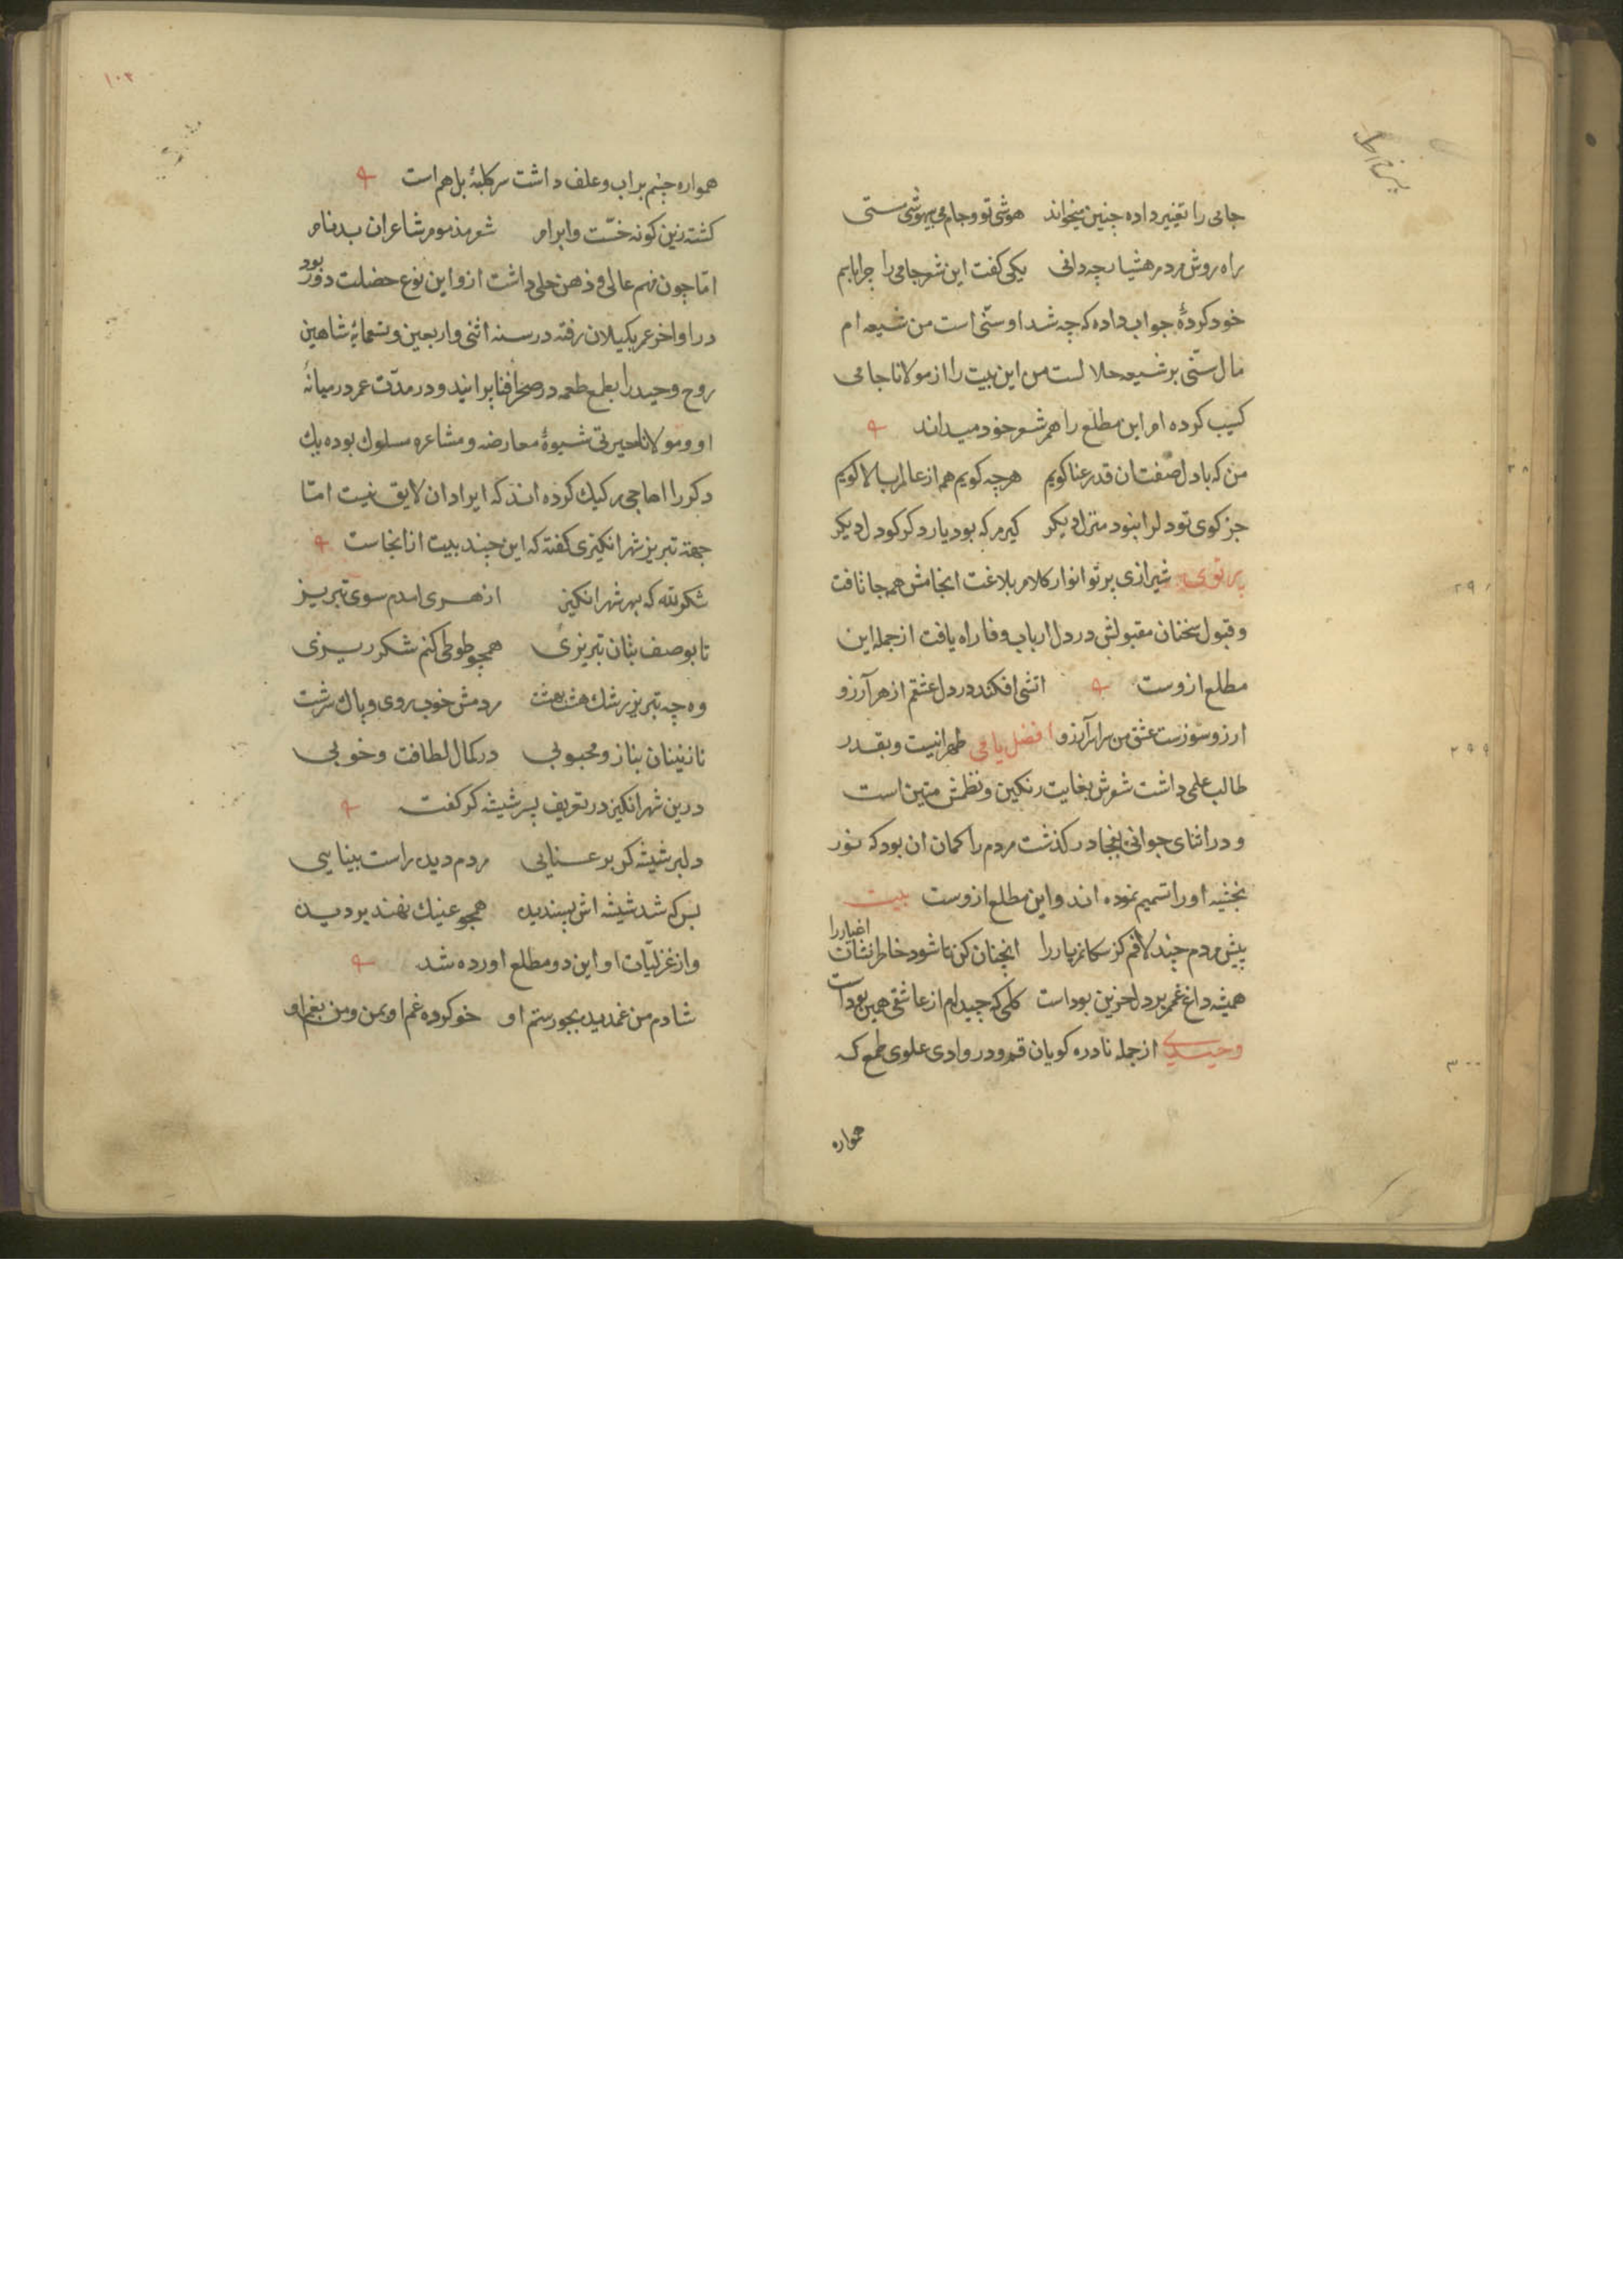 جامی را تغییر داده چنین میخواند هوشی تو و جام می بیهوشی مستی
راه روش مردم هشیار چه دانی یکی کفت این شعر جامی را چرا بابم
خود کردهٔ جواب داده که چه شد او سنی است من شیعه ام
مال سنّی بر شیعه حلالست من این بیت را از مولانا جامی
کسب کرده ام این مطلع را هم شعر خود میداند
من که با دل صفت ان قد رعنا کویم هرچه کویم همه از عالم بالا کویم
جز کوی تو دلرا نبود منزل دیکر کیرم که بود یار دکر کو دل دیکر
پرتوی شیرازی پرتو انوار کلام بلاغت انجامش همه جا تافت
و قبول سخنان مقبولش در دل ارباب وفا راه یافت از جمله این
مطلع ازوست اتشی افکند در دل عشقم از هر آرزو
ارزو سوزست عشق من سراسر آرزو افضل نامی طهرانیست و بقدر
طالب علمی داشت شعرش بغایت رنکین و نظمش متین است
و در اثنای جوانی بفجا در کذشت مردم را کمان ان بود که نور
بخشیه او را تسمیم نموده اند و این مطلع ازوست بیت
پیش مردم چند لافم کز سکانم یار را انچنان کن تا شود خاطرنشان اغیار را
همیشه داغ غم بر دل حزین بود است کلی که چیده ام از عاشقی همین بود است
وحیدی از جمله نادره کویان قم و در وادی علوی طمع که
همواره
۲۹۹
۳۰۰
۱۰۲
همواره چشم بر اب و علف داشت سر کلبهٔ بل هم است
کشته زین کونه خسّت و ابرام شعر مذموم و شاعران بدنام
امّا چون فهم عالی و ذهن جلی داشت ازو این نوع خصلت دور بود
در اواخر عمر بکیلان رفته در سنه اثنی و اربعین و تسعمایه شاهین
روح وحید را بطمع طعمه در صحرا فنا پرانید و در مدّت عمر در میانهٔ
او و مولانا حیرتی شیوهٔ معارضه و مشاعره مسلوک بوده یک
دکر را اهاجی رکیک کرده اند که ایراد ان لایق نیست امّا
جهة تبریز شهر انکیزی کفته که این چند بیت از انجاست
شکر لله که بهر شهر انکیز از هری امدم سوی تبریز
تا بوصف بتان تبریزی همچو طوطی کنم شکر ریزی
وه چه تبریز رشک هشت بهشت مردمش خوب روی و پاک سرشت
نازنینان بناز و محبوبی در کمال لطافت و خوبی
درین شهر انکیز در تعریف پسر شیشه کر کفت
دلبر شیشه کر بر عنایی مردم دیده راست بینایی
بس که شد شیشه اش پسندیده همچو عینک نهند بر دیده
و از غزلیّات او این دو مطلع اورده شد
شادم من غمدیده بجور ستم او خو کرده غم او بمن و من بغم او